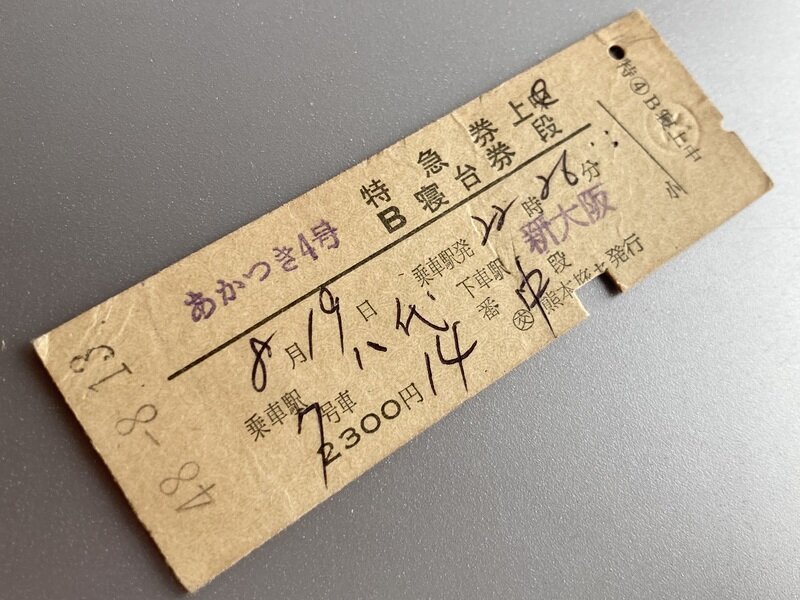 特急券 上
B寝台券 段
あかつき4号
8月19日 乗車駅発 22時26分
乗車駅 八代 下車駅 新大阪
7号車 14番 中段
2300円 ㊋熊本 発行
48.-8.13.
特④B寝
小